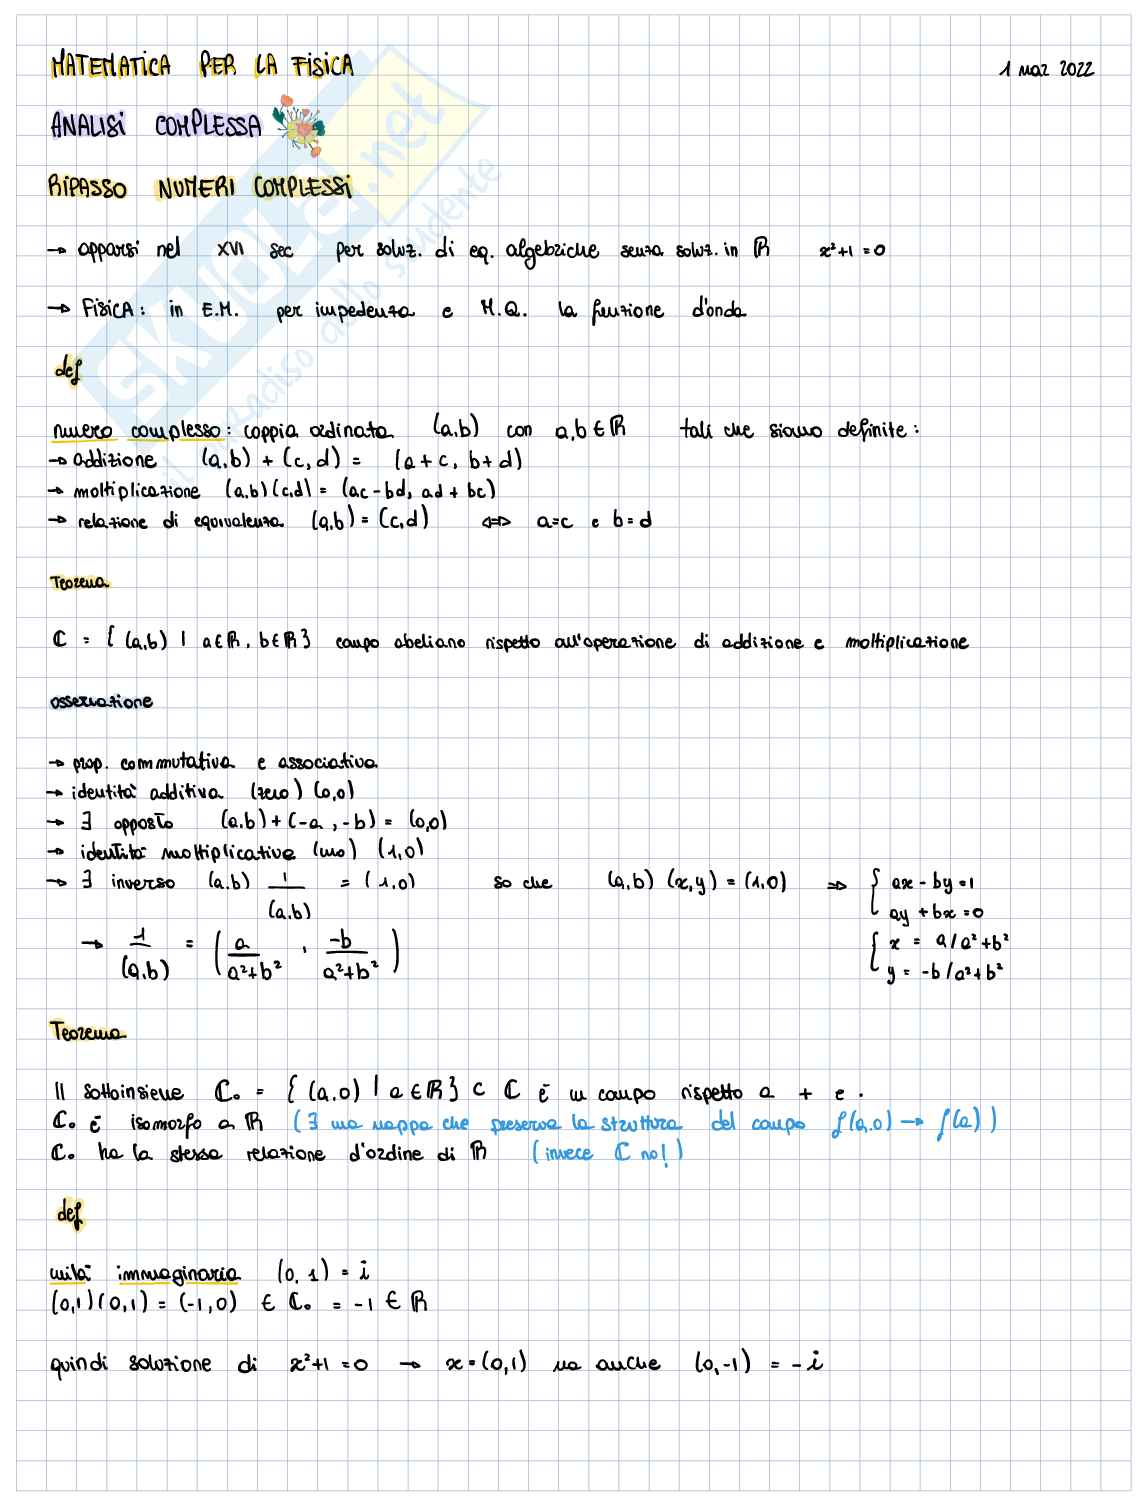 MATEMATICA PER LA FISICA
1 mar 2022
ANALISI COMPLESSA
RIPASSO NUMERI COMPLESSI
→ apparsi nel XVI sec per soluz. di eq. algebriche senza soluz. in ℝ x²+1=0
→ FISICA: in E.M. per impedenza e M.Q. la funzione d'onda
def
numero complesso: coppia ordinata (a,b) con a,b ∈ ℝ tali che siano definite:
→ addizione (a,b) + (c,d) = (a+c, b+d)
→ moltiplicazione (a,b)(c,d) = (ac-bd, ad+bc)
→ relazione di equivalenza (a,b) = (c,d) ⇔ a=c e b=d
Teorema
ℂ = { (a,b) | a∈ℝ, b∈ℝ } campo abeliano rispetto all'operazione di addizione e moltiplicazione
osservazione
→ prop. commutativa e associativa
→ identità additiva (zero) (0,0)
→ ∃ opposto (a,b)+(-a,-b) = (0,0)
→ identità moltiplicativa (uno) (1,0)
→ ∃ inverso (a,b) 1/(a,b) = (1,0) so che (a,b)(x,y) = (1,0) ⇒ { ax-by=1
ay+bx=0
→ 1/(a,b) = ( a/a²+b² , -b/a²+b² ) { x = a/a²+b²
y = -b/a²+b²
Teorema
Il sottoinsieme ℂ₀ = { (a,0) | a∈ℝ } ⊂ ℂ è un campo rispetto a + e ·
ℂ₀ è isomorfo a ℝ (∃ una mappa che preserva la struttura del campo f(a,0) → f(a))
ℂ₀ ha la stessa relazione d'ordine di ℝ (invece ℂ no!)
def
unità immaginaria (0,1) = i
(0,1)(0,1) = (-1,0) ∈ ℂ₀ = -1 ∈ ℝ
quindi soluzione di x²+1=0 → x=(0,1) ma anche (0,-1) = -i
SKUOLA.net
il paradiso dello studente